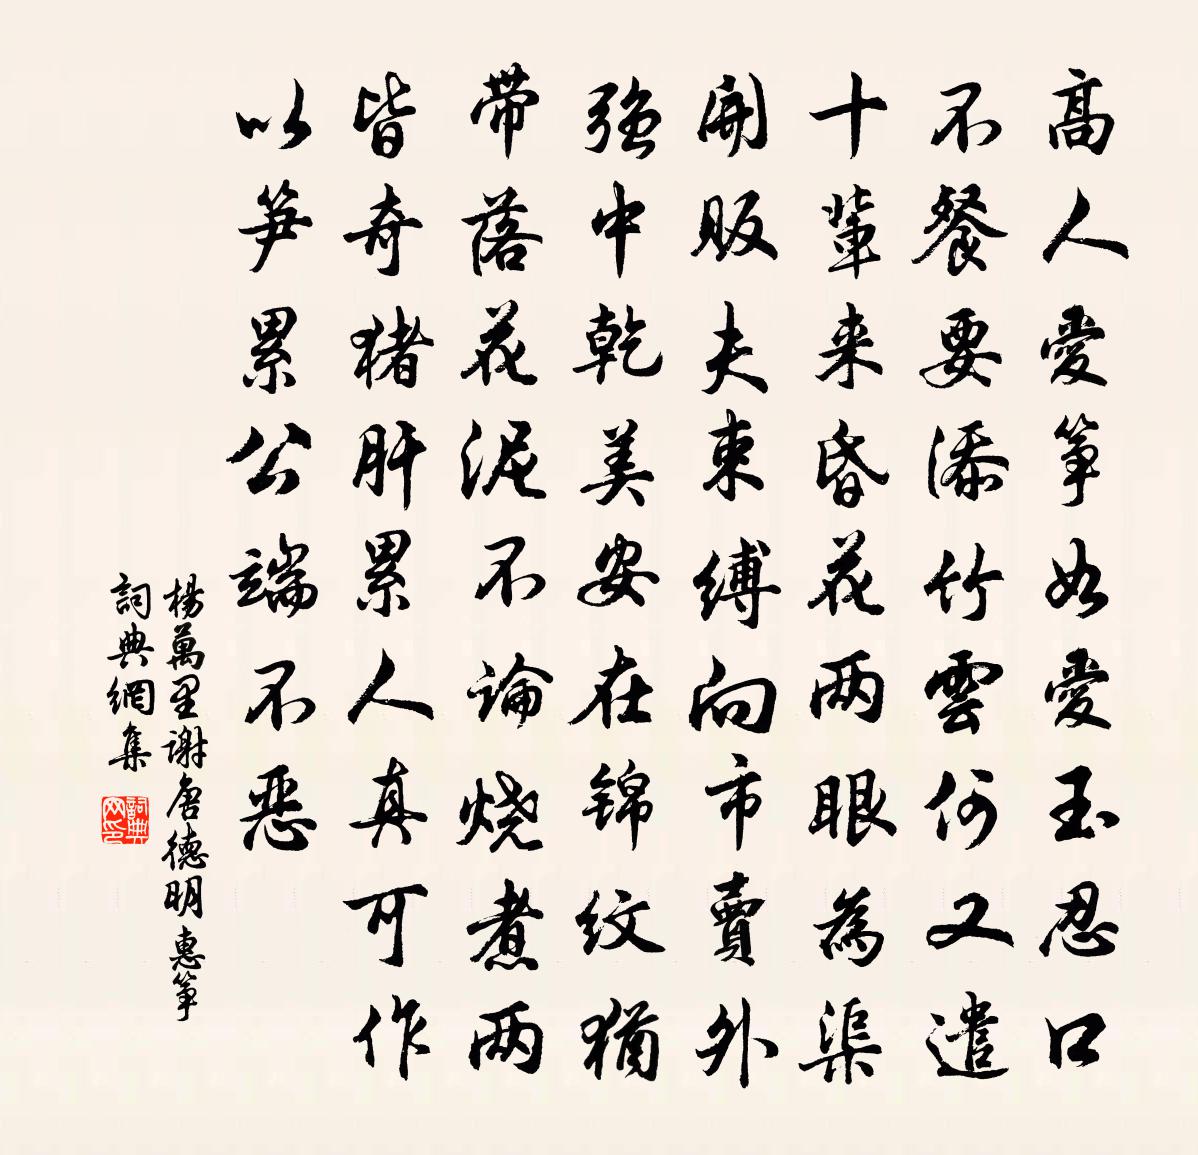 高人愛箏如愛玉忍口
不餐要添竹雲何又遣
十輩来昏花两眼為渠
開販夫束縛向市賣外
強中乾美安在锦纹猶
帶落花泥不論烧煮两
皆奇猪肝累人真可作
以笋累公端不惡
楊萬里謝唐德明惠箏
詞典網集
詞典网印